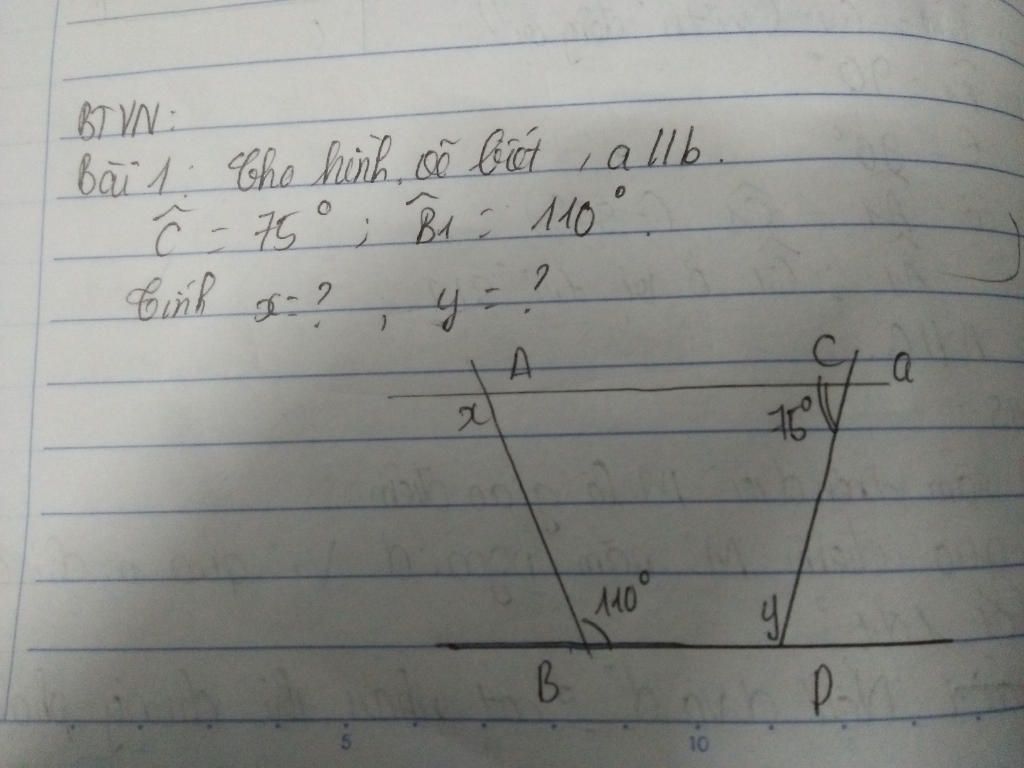 BTVN:
Bài 1: Cho hình vẽ biết, a//b.
Ĉ = 75°; B̂1 = 110°.
Tính x=?, y=?
A C a
x 75°
110° y
B D
5 10